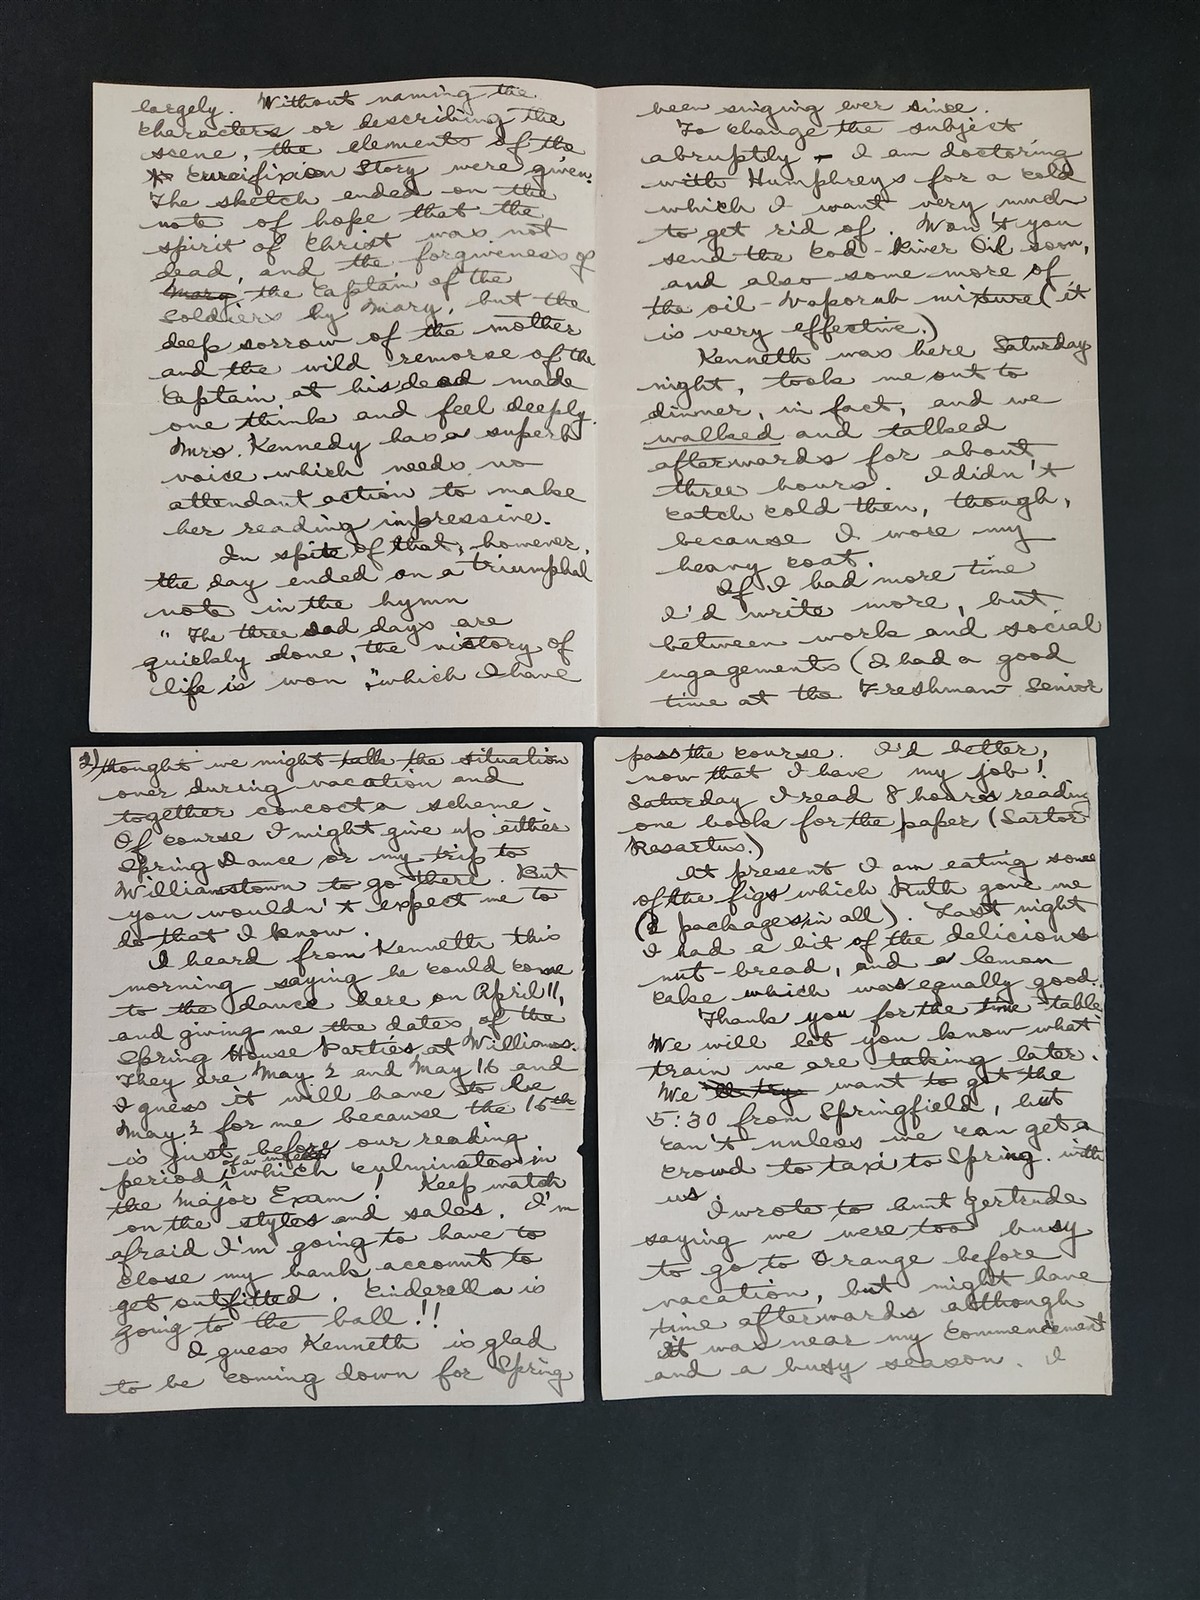 largely. Without naming the
characters or describing the
scene, the elements of the
Crucifixion Story were given.
The sketch ended on the
note of hope that the
spirit of Christ was not
dead, and the forgiveness of
Mary, the Captain of the
soldiers by Mary, but the
deep sorrow of the mother
and the wild remorse of the
Captain at his dead made
one think and feel deeply.
Mrs. Kennedy has a superb
voice which needs no
attendant action to make
her reading impressive.
In spite of that, however,
the day ended on a triumphal
note in the hymn
"The three sad days are
quickly done, the victory of
life is won," which I have
been singing ever since.
To change the subject
abruptly - I am doctoring
with Humphreys for a cold
which I want very much
to get rid of. Won't you
send the Cod-River Oil soon,
and also some more of
the oil-Vaporub mixture (it
is very effective.)
Kenneth was here Saturday
night, took me out to
dinner, in fact, and we
walked and talked
afterwards for about
three hours. I didn't
catch cold then, though,
because I wore my
heavy coat.
If I had more time
I'd write more, but
between work and social
engagements (I had a good
time at the Freshman-Senior
2) thought we might talk the situation
over during vacation and
together concoct a scheme.
Of course I might give up either
Spring Dance or my trip to
Williamstown to go there. But
you wouldn't expect me to
do that I know.
I heard from Kenneth this
morning saying he could come
to the dance here on April 11,
and giving me the dates of the
Spring House Parties at Williams.
They are May 2 and May 16 and
I guess it will have to be
May 2 for me because the 16th
is just before our reading
period which culminates in
the Major Exam! Keep watch
on the styles and sales. I'm
afraid I'm going to have to
close my bank account to
get outfitted. Ciderella is
going to the ball!!
I guess Kenneth is glad
to be coming down for Spring
pass the course. I'd better,
now that I have my job!
Saturday I read 8 hours reading
one book for the paper (Sartor
Resartus.)
At present I am eating some
of the figs which Ruth gave me
(2 packages in all). Last night
I had a bit of the delicious
nut-bread, and a lemon
cake which was equally good.
Thank you for the time-table
We will let you know what
train we are taking later.
We'll try want to get the
5:30 from Springfield, but
can't unless we can get a
crowd to taxi to Spring. with
us
I wrote to Aunt Gertrude
saying we were too busy
to go to Orange before
vacation, but might have
time afterwards although
it was near my Commencement
and a busy season. I